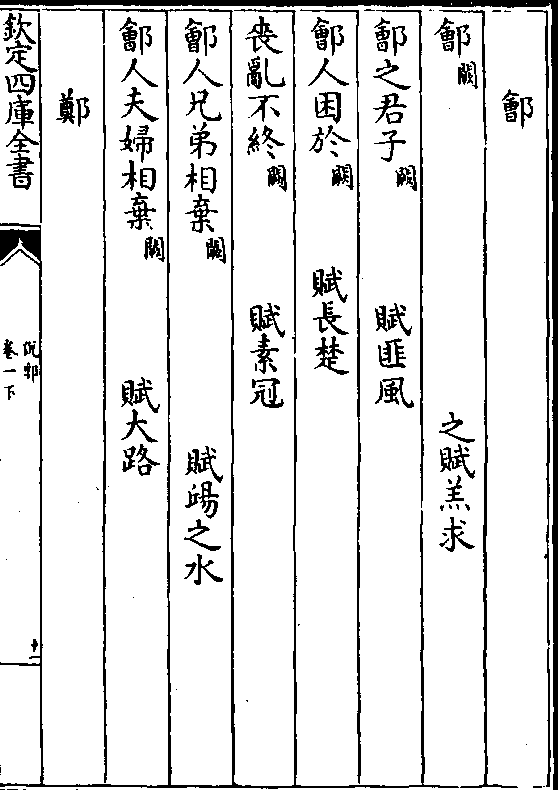 鄶
鄶闕 之賦羔求
鄶之君子闕 賦匪風
鄶人困於闕 賦長楚
丧亂不終闕 賦素冠
鄶人兄弟相棄闕 賦之水
鄶人夫婦相棄闕 賦大路
鄭
欽定四庫全書 説郛 卷一下 十一